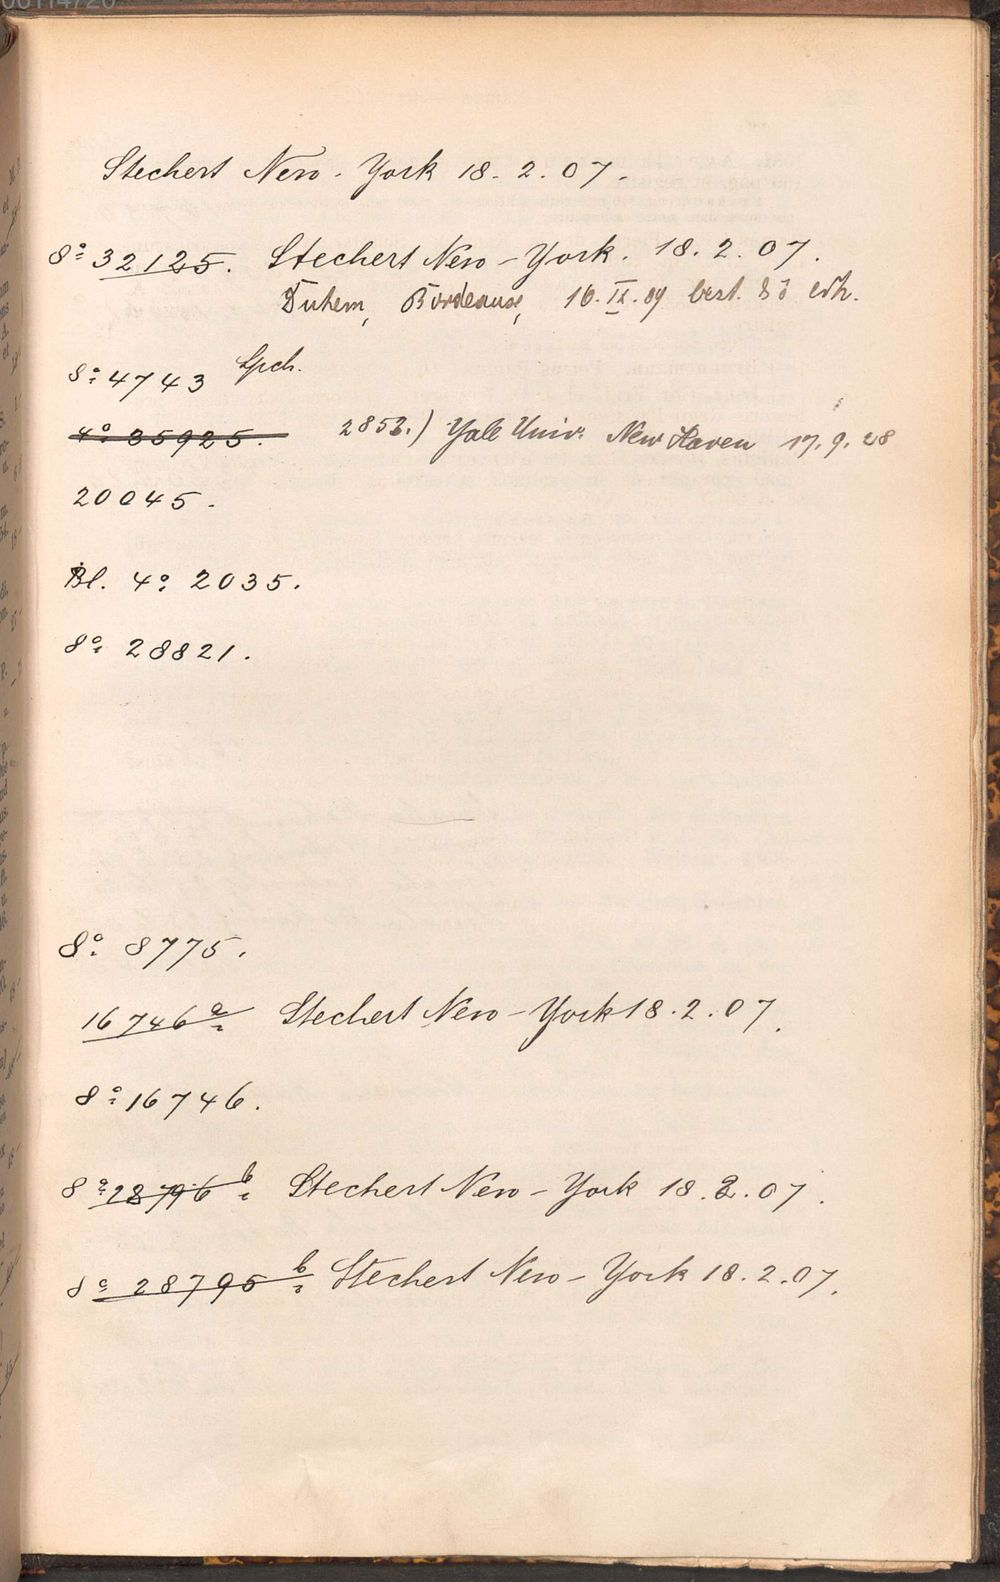 Stechert New-York 18.2.07.
8º 32125. Stechert New-York. 18.2.07.
Duhem, Bordeaux, 16.IX.09 best. 8º
8º 4743 Spch.
4º 35925. 2853.) Yale Univ. New Haven 17.9.28
20045.
Bl. 4º 2035.
8º 28821.
8º 8775.
16746a Stechert New-York 18.2.07.
8º 16746.
8º 28796 b Stechert New-York 18.2.07.
8º 28795 b Stechert New-York 18.2.07.